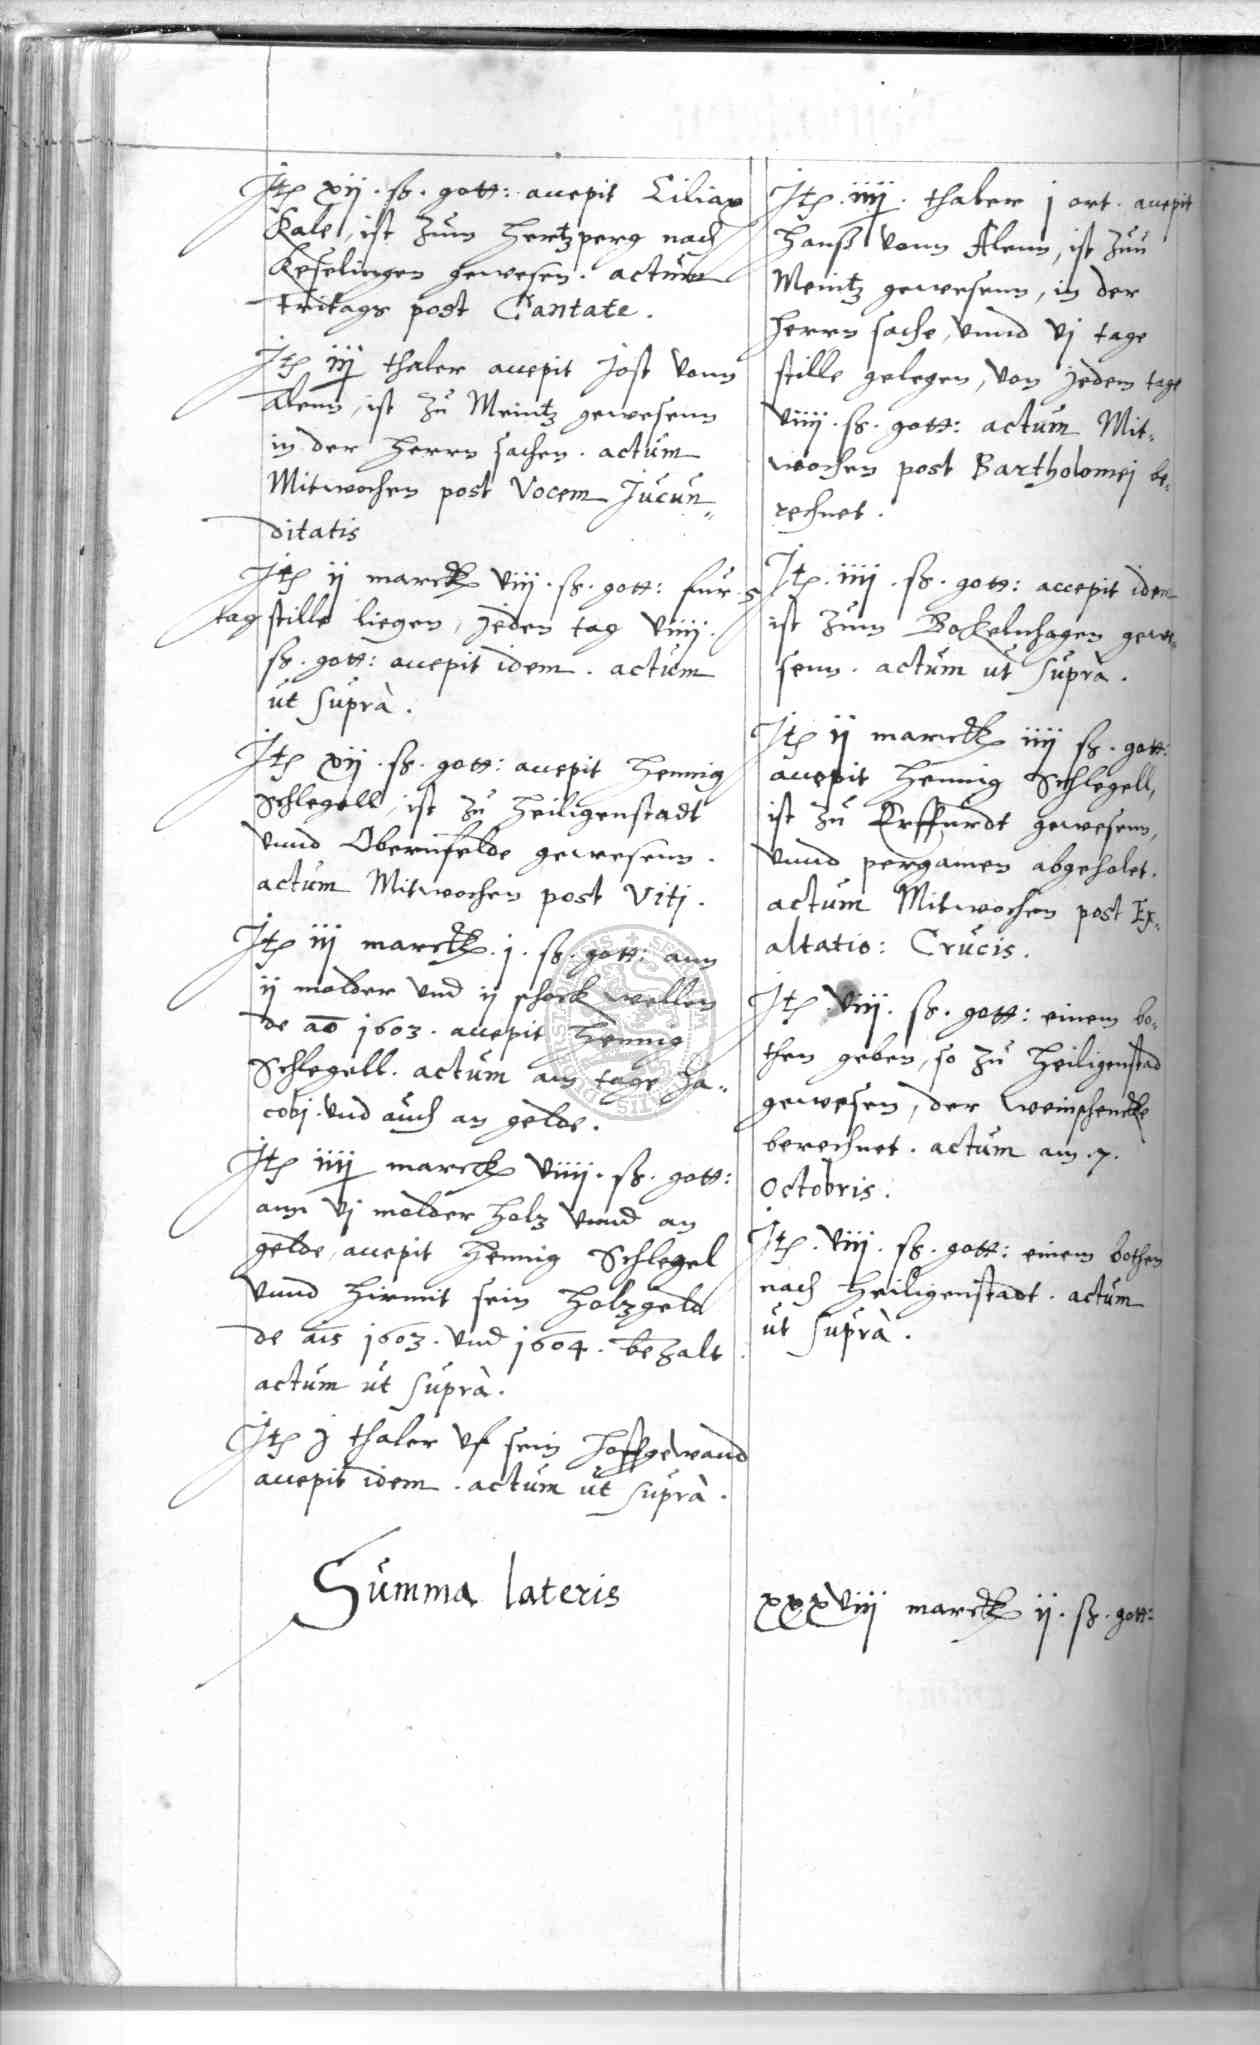 Itē xij . ß . gott: accepit Ciliax
Kale, ist zum Hertzperg nach
Keselingen gewesen . actum
Fritags post Cantate .
Itē iij thaler accepit Jost vonn
Alenn, ist zu Meintz gewesenn
in der Herrn sachen . actum
Mitwochen post Vocem Jucun„
ditatis
Itē ij marck viij . ß . gott: fur . 5
tag stille liegen, jeden tag viiij .
ß . gott: accepit idem . actum
ut suprà .
Itē xij . ß . gott: accepit Hennig
Schlegell, ist zu Heiligenstadt
vnnd Obernfelde gewesenn .
actum Mitwochen post Viti .
Itē iij marck . j . ß . gott: ann
ij molder vnd ij schock wellen
de ao 1603 . accepit Hennig
Schlegell . actum am tage Ja„
cobj . vnd auch an gelde .
Itē iiij marck viiij . ß . gott:
ann vj molder holz vnnd an
gelde, accepit Hennig Schlegel
vnnd hirmit sein holzgeld
de ais 1603 . vnd 1604 . bezalt .
actum ut suprà .
Itē j thaler vf sein hoffgewand
accepit idem . actum ut suprà .
Summa lateris
Itē . iiij . thaler j ort . accepit
Hanß vonn Alenn, ist zuu
Meintz gewesenn, in der
Herrn sache, vnnd vj tage
stille gelegen, von jedem tage
viiij . ß . gott: actum Mit„
wochen post Bartholomej be„
rechnet .
Itē . iiij . ß . gott: accepit idem
ist zum Bockelnhagen gewe„
senn . actum ut suprà .
Itē ij marck iiij ß . gott:
accepit Hennig Schlegell,
ist zu Erffurdt gewesenn,
vnnd pergamen abgeholet .
actum Mitwochen post Ex„
altatio: Crucis .
Itē . viij . ß . gott: einem bo„
then geben, so zu Heiligenstad
gewesen, der weinschencke
berechnet . actum am . 7 .
Octobris .
Itē . viij . ß . gott: einem bothen
nach Heiligenstadt . actum
ut suprà .
xxxviij marck ij . ß . gott: